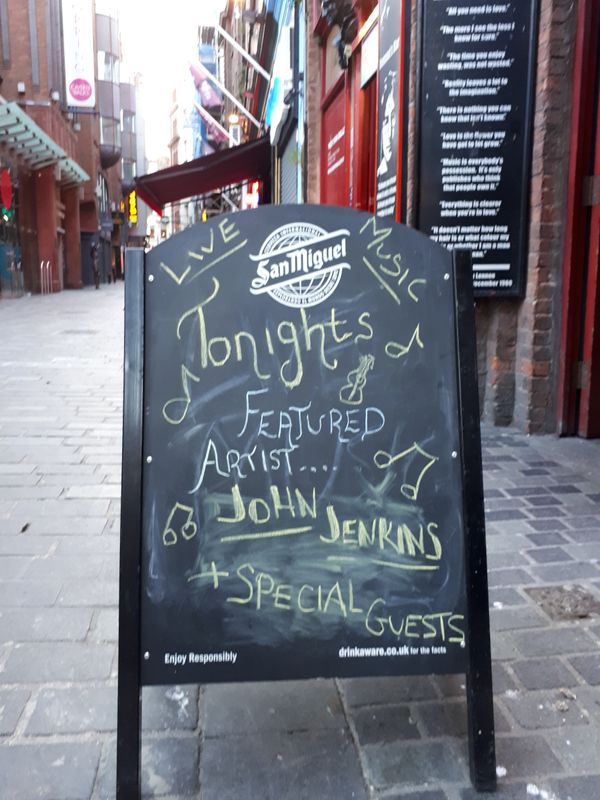 "All you need is love."
"The more I see the less I
know for sure."
"The time you enjoy
wasting, was not wasted."
"Reality leaves a lot to
the imagination."
"There is nothing you can
know that isn't known."
"Love is the flower you
have got to let grow."
"Music is everybody's
possession. It's only
publishers who think
that people own it."
"Everything is clearer
when you're in love."
"It doesn't matter how long
hair is or what colour
whether I am a man
Lennon
December 1980
LIVE MUSIC
San Miguel
Tonights
FEATURED
ARTIST....
JOHN JENKINS
+ SPECIAL GUESTS
Enjoy Responsibly drinkaware.co.uk for the facts